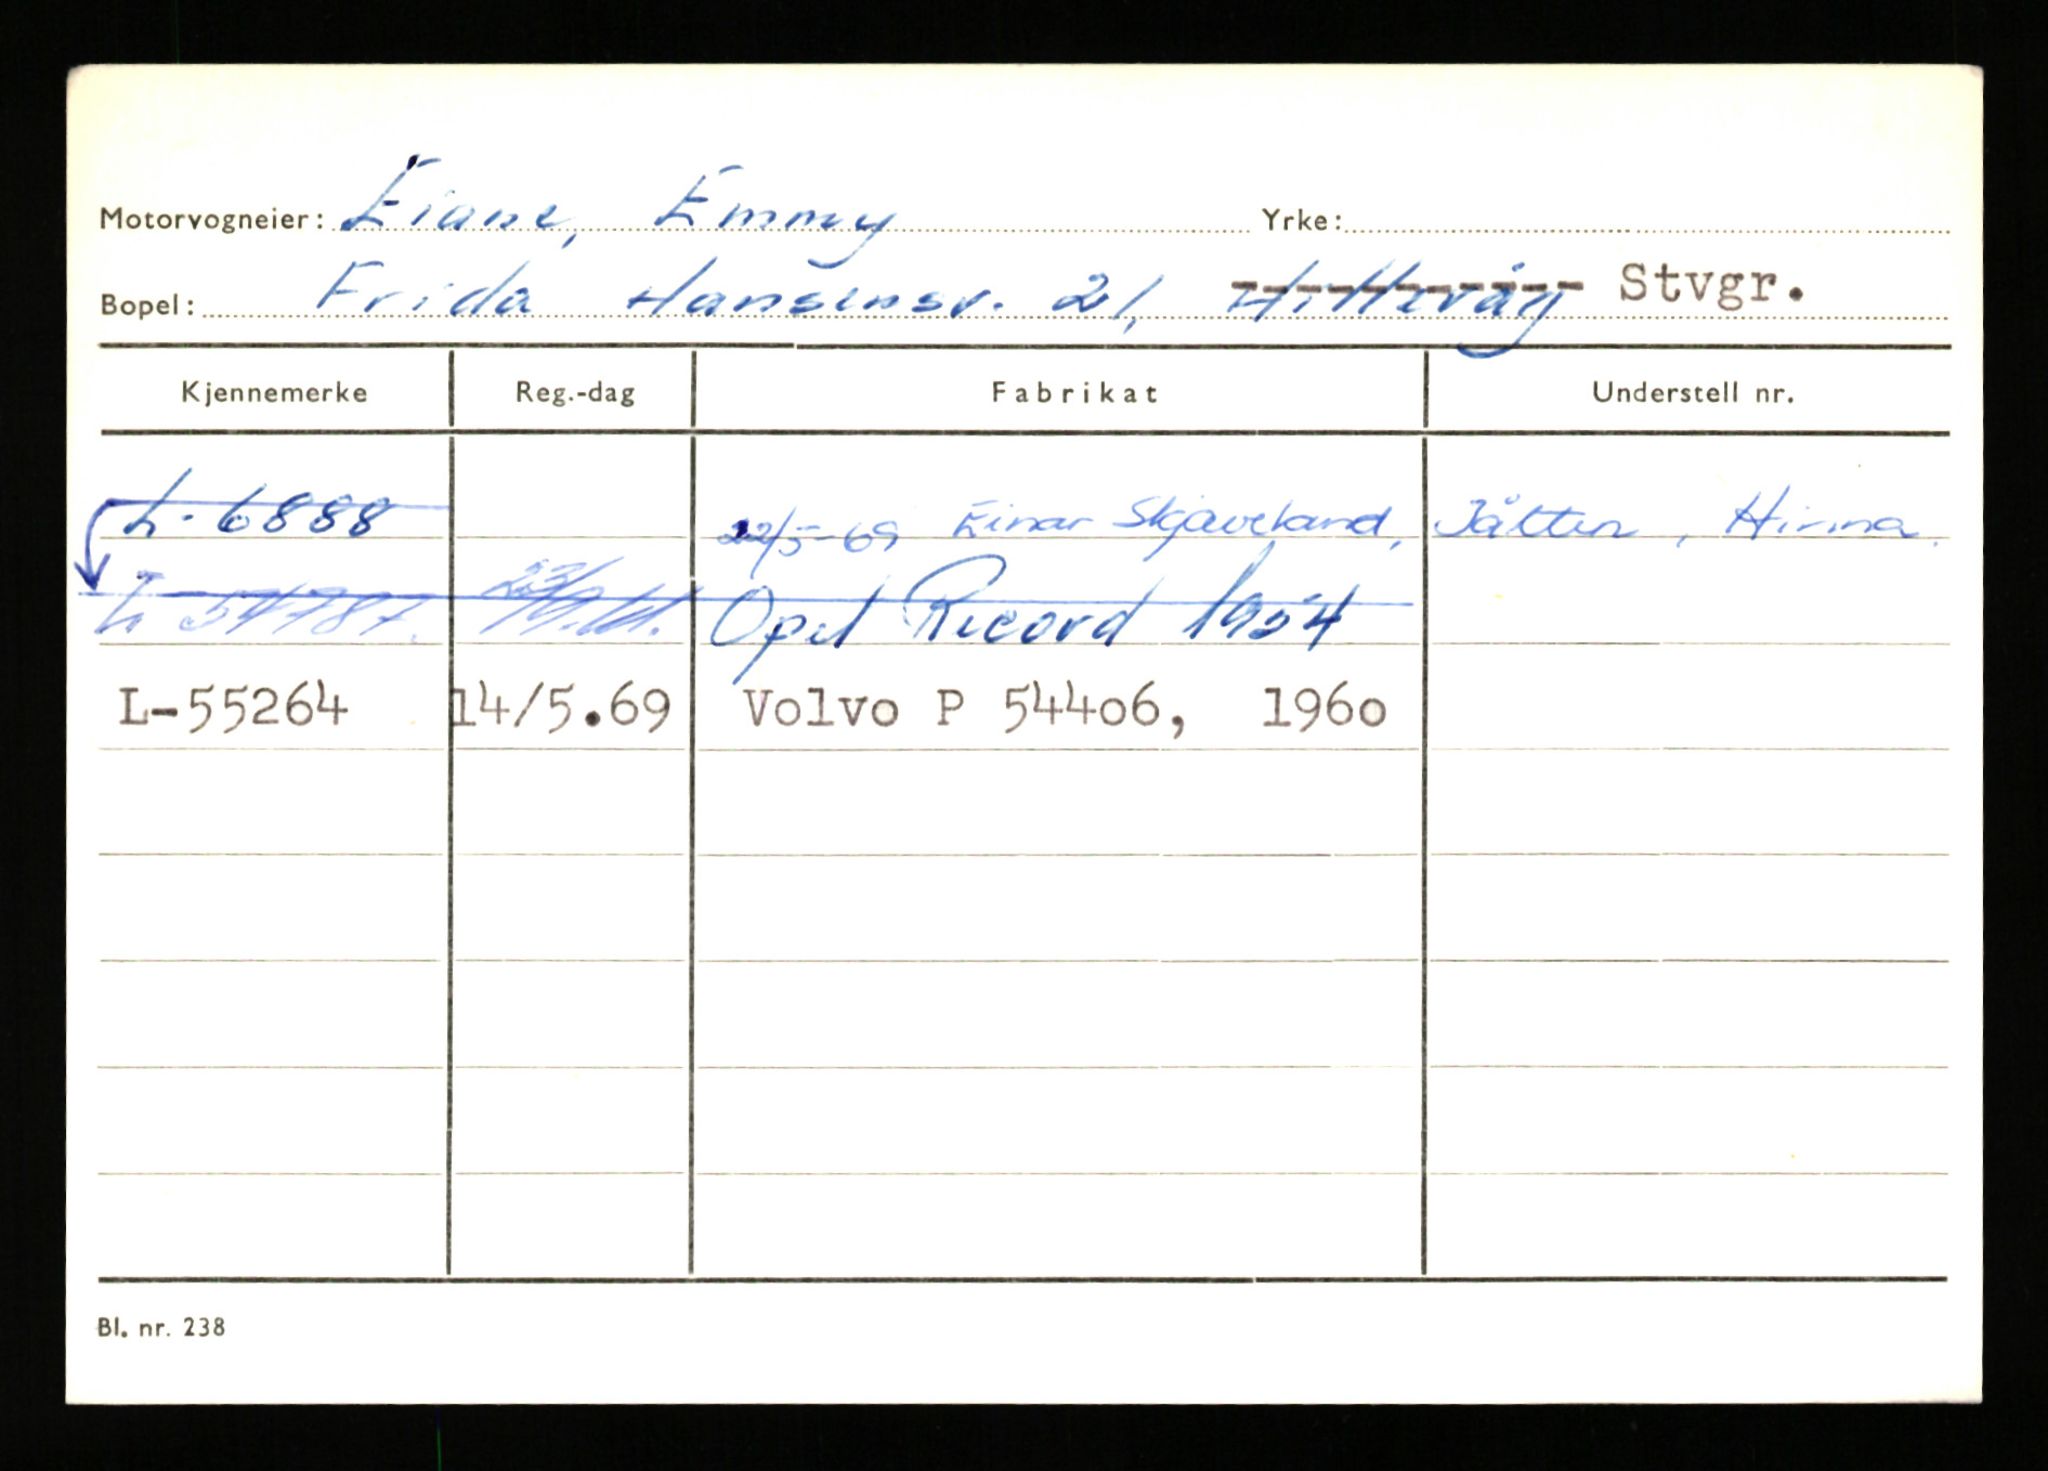 Motorvogneier: Eiane, Emmy Yrke:
Bopel: Frida Hansensv. 21, Hillevåg Stvgr.
Kjennemerke Reg.-dag Fabrikat Understell nr.
L-6888 22/5-69 Einar Skjæveland, Jåtten, Hinna.
Opel Record 1954
L-55264 14/5.69 Volvo P 54406, 1960
Bl. nr. 238